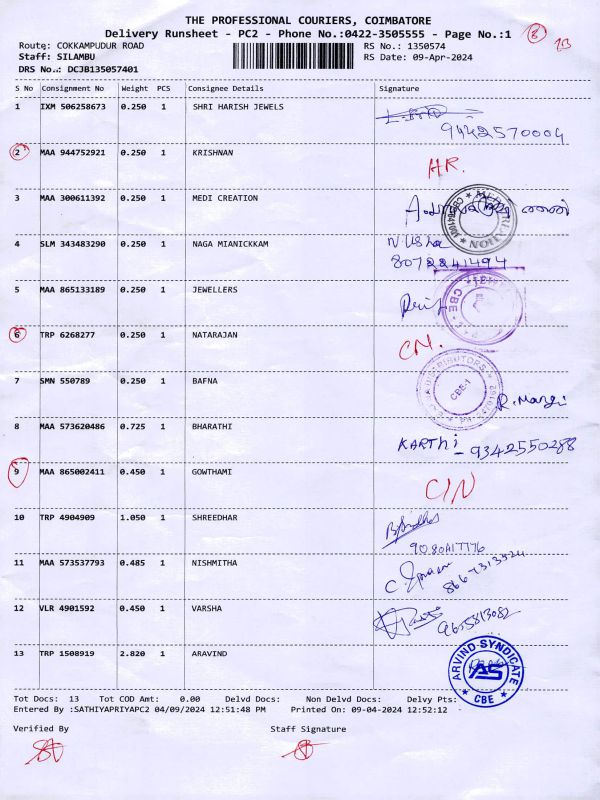 THE PROFESSIONAL COURIERS, COIMBATORE
Delivery Runsheet - PC2 - Phone No.:0422-3505555 - Page No.:1
8
Route: COKKAMPUDUR ROAD RS No.: 1350574
Staff: SILAMBU RS Date: 09-Apr-2024
DRS No.: DCJB135057401
S No Consignment No Weight PCS Consignee Details Signature
1 IXM 506258673 0.250 1 SHRI HARISH JEWELS
9442570004
2 MAA 944752921 0.250 1 KRISHNAN HR.
3 MAA 300611392 0.250 1 MEDI CREATION
4 SLM 343483290 0.250 1 NAGA MIANICKKAM N.Usha
8072241494
5 MAA 865133189 0.250 1 JEWELLERS
CBE
6 TRP 6268277 0.250 1 NATARAJAN CN.
7 SMN 550789 0.250 1 BAFNA
DISTRIBUTORS
CBE-1
8 MAA 573620486 0.725 1 BHARATHI KARTHi - 9342550288
9 MAA 865002411 0.450 1 GOWTHAMI C/N
10 TRP 4904909 1.050 1 SHREEDHAR
9080417776
11 MAA 573537793 0.485 1 NISHMITHA
12 VLR 4901592 0.450 1 VARSHA 9655813082
13 TRP 1508919 2.820 1 ARAVIND
ARVIND SYNDICATE
AS
CBE
Tot Docs: 13 Tot COD Amt: 0.00 Delvd Docs: Non Delvd Docs: Delvy Pts:
Entered By :SATHIYAPRIYAPC2 04/09/2024 12:51:48 PM Printed On: 09-04-2024 12:52:12
Verified By Staff Signature